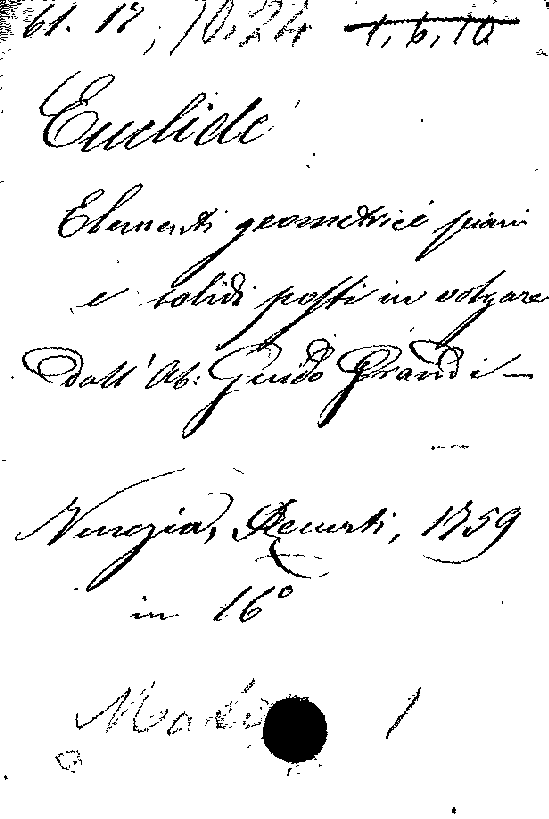 61. 17; 10.24 1, 6, 10
Euclide
Elementi geometrici piani
e solidi posti in volgare
dall' Ab: Guido Grandi —
Venezia, Recurti, 1759
in 16°
1